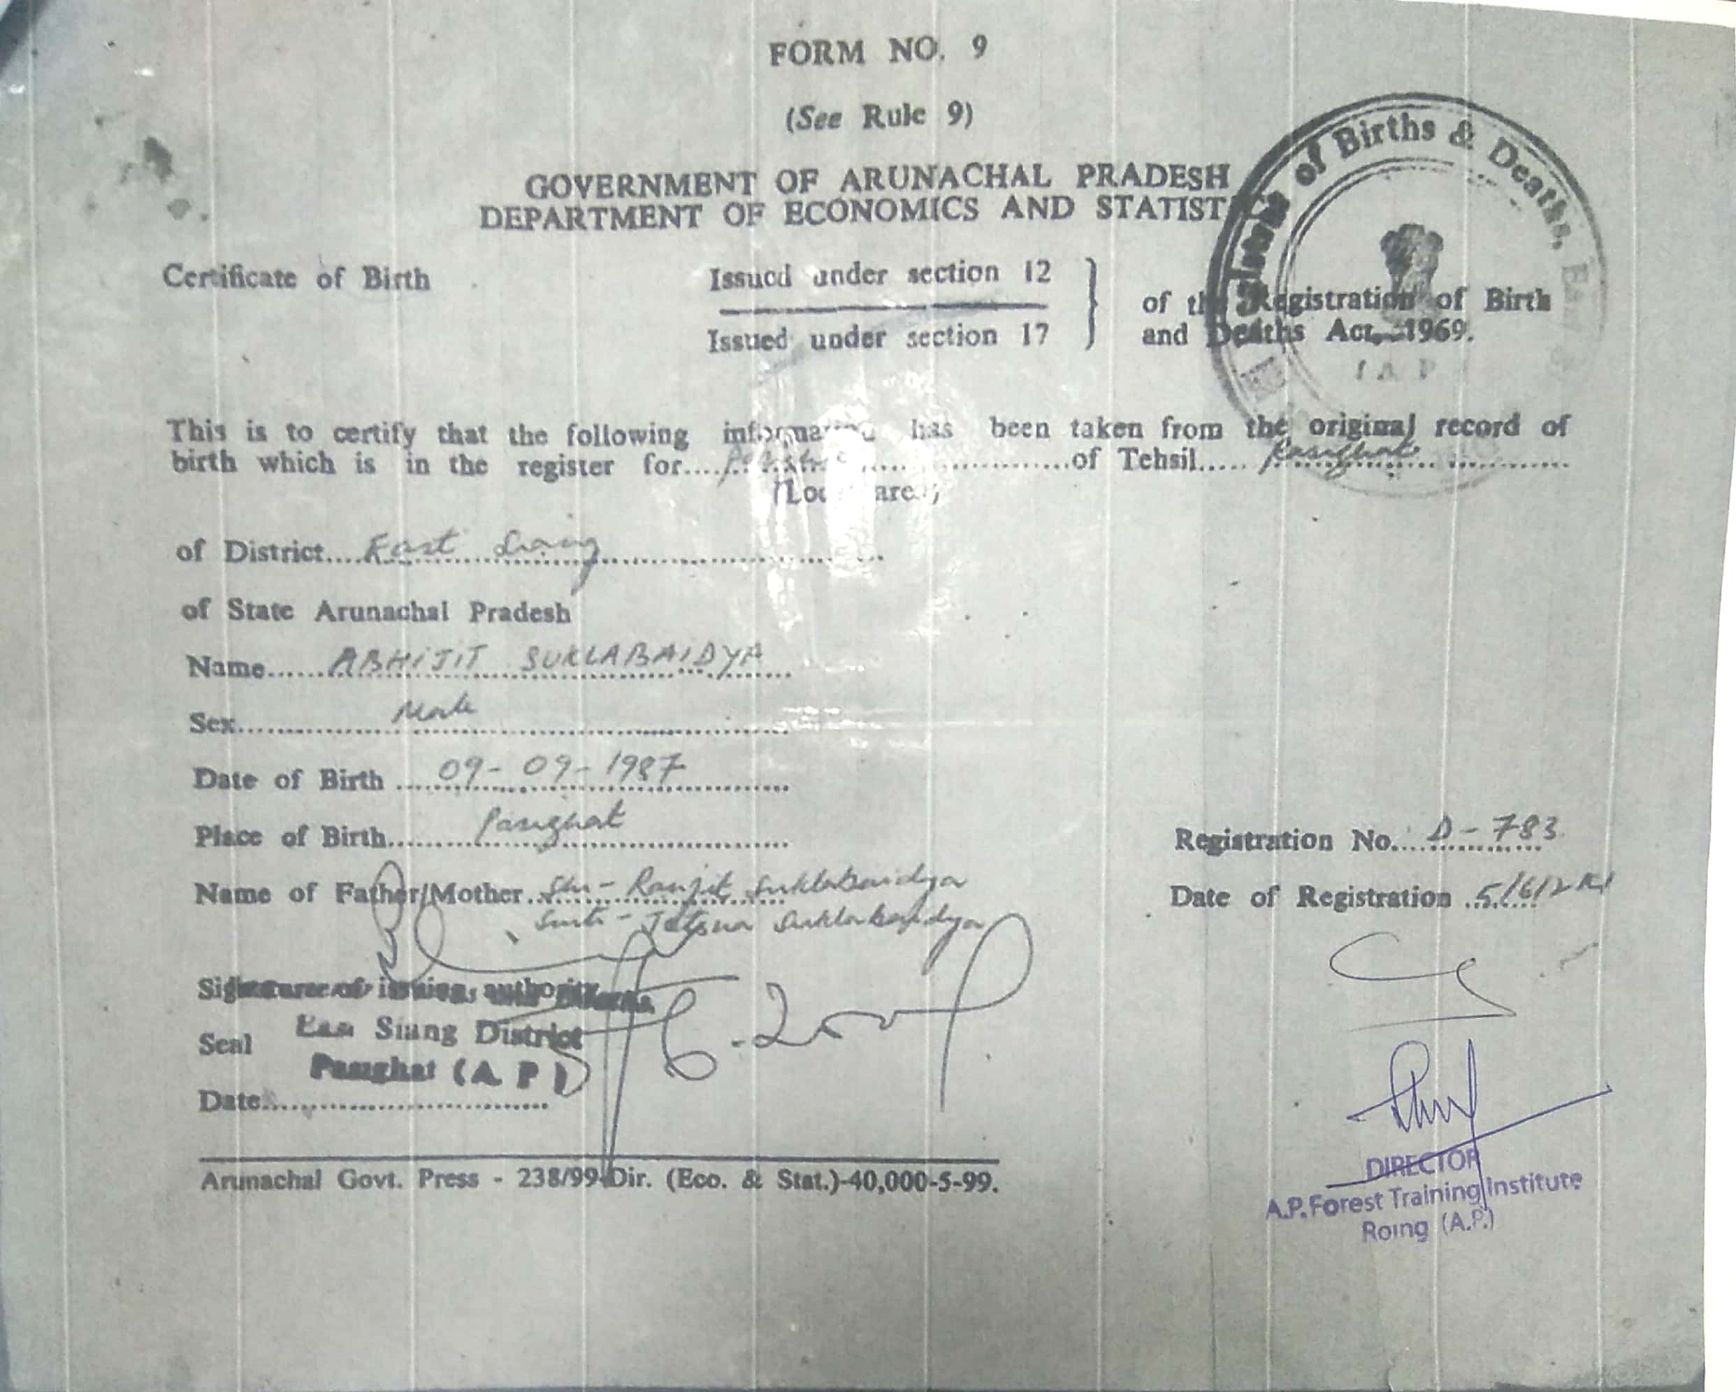 FORM NO. 9
(See Rule 9)
GOVERNMENT OF ARUNACHAL PRADESH
DEPARTMENT OF ECONOMICS AND
of Births & Deaths,
Certificate of Birth
Issued under section 12
Issued under section 17
of the Registration of Birth
and Deaths Act, 1969.
This is to certify that the following information has been taken from the original record of
birth which is in the register for.... of Tehsil..... Pasighat
of District.... East Siang
of State Arunachal Pradesh
Name...... ABHIJIT SUKLABAIDYA
Sex.... Male
Date of Birth .... 09-09-1987
Place of Birth.... Pasighat
Registration No.... D-783
Name of Father/Mother.. Shri - Ranjit Suklabaidya
Smti - Jotsna Suklabaidya
Date of Registration
Signature of issuing authority
Seal
East Siang District
Pasighat (A. P)
Date
Arunachal Govt. Press - 238/99-Dir. (Eco. & Stat.)-40,000-5-99.
DIRECTOR
A.P. Forest Training Institute
Roing (A.P.)